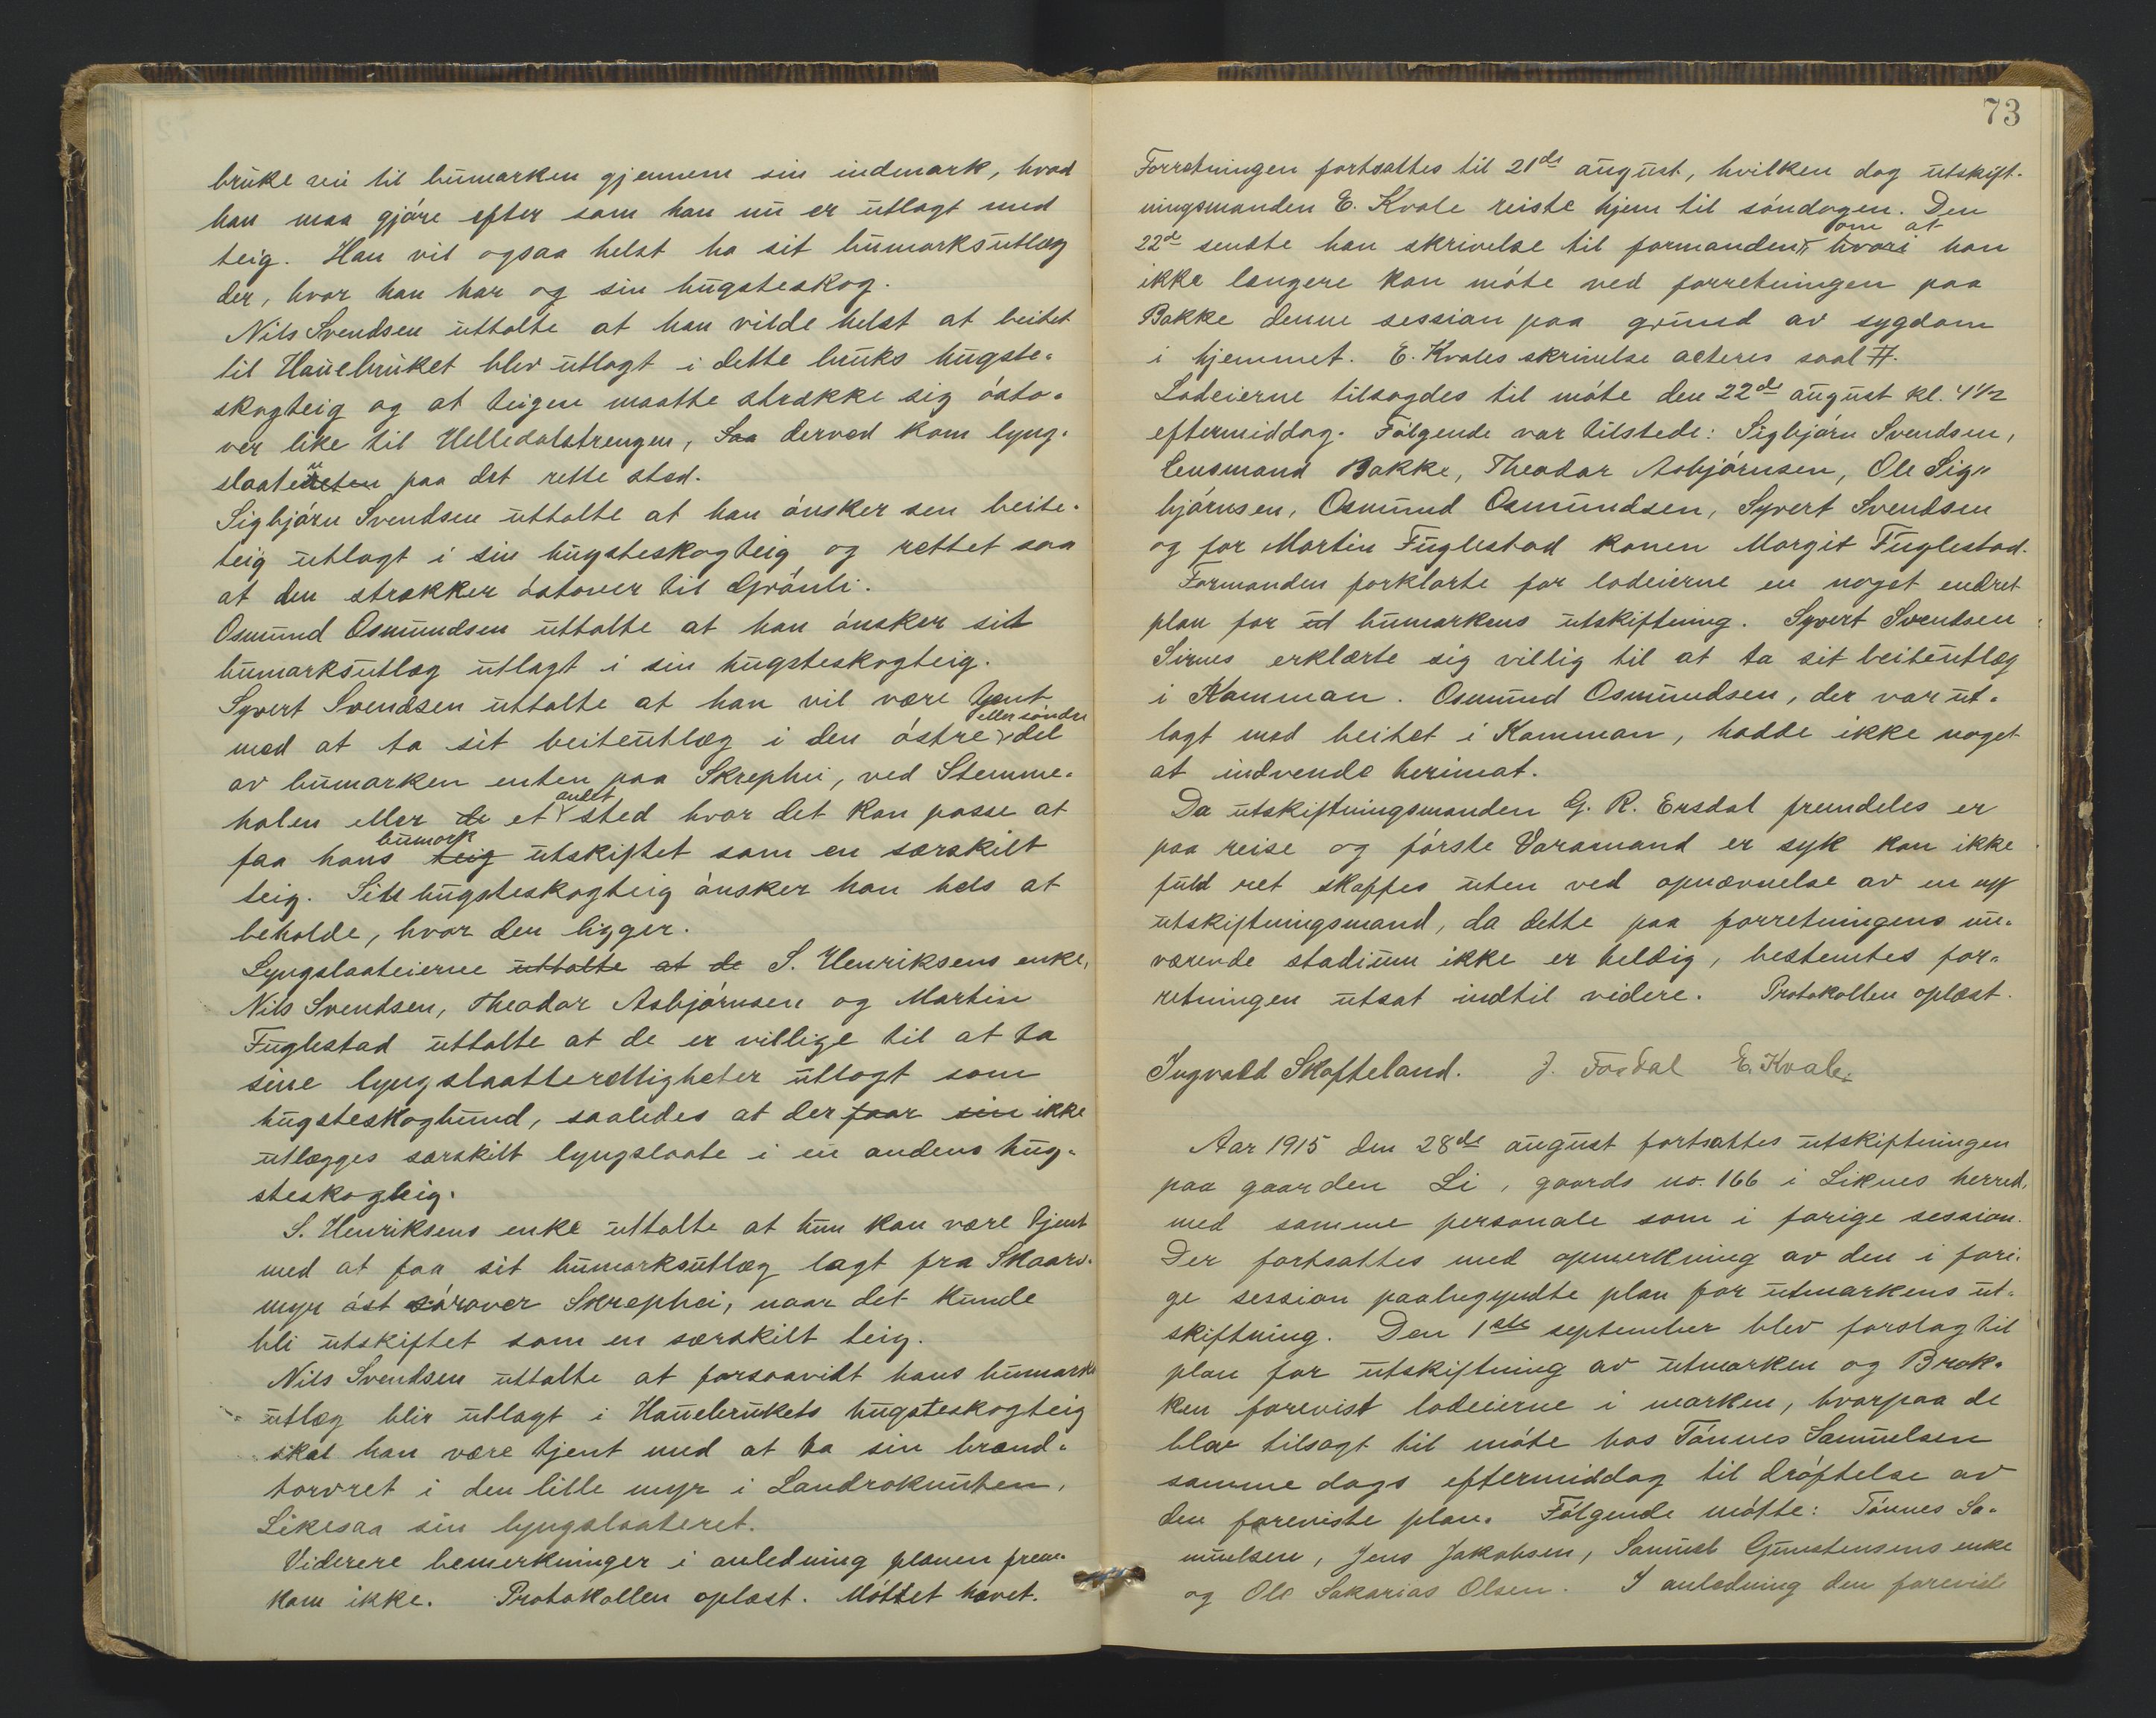 bruke vei til bumarken gjennem sin indmark, hvad
han maa gjøre efter som han nu er utlagt med
teig. Han vil ogsaa helst ha sit bumarksutlæg
der, hvor han har og sin hugsteskog.
Nils Svendsen uttalte at han vilde helst at beitet
til Hauebruket blev utlagt i dette bruks hugste-
skogteig og at teigen maatte strække sig østo-
ver like til Helledalstrengen, saa derved kom lyng-
slaatten paa det rette sted.
Sigbjørn Svendsen uttalte at han ønsker sen beite-
teig utlagt i sin hugsteskogteig og rettet saa
at den strækker østover til Grønli.
Osmund Osmundsen uttalte at han ønsker sit
bumarksutlæg utlagt i sin hugsteskogteig.
Syvert Svendsen uttalte at han vil være tjent
med at ta sit beiteutlæg i den østre eller søndre del
av bumarken enten paa Skrephei, ved Stemme-
halen eller de et andet sted hvor det kan passe at
faa hans teig bumark utskiftet som en særskilt
teig. Sin hugsteskogteig ønsker han hels at
beholde, hvor den ligger.
Lyngslaateierne uttalte at de S. Henriksens enke,
Nils Svendsen, Theodor Asbjørnsen og Martin
Fuglestad uttalte at de er villige til at ta
sine lyngslaatterettigheter utlagt som
hugsteskogbund, saaledes at der faar sin ikke
utlægges særskilt lyngslaate i en andens hug-
steskogteig.
S. Henriksens enke uttalte at hun kan være tjent
med at faa sit bumarksutlæg lagt fra Skaars-
myr øst sørover Skrephei, naar det kunde
bli utskiftet som en særskilt teig.
Nils Svendsen uttalte at forsaavidt hans bumarks
utlæg blir utlagt i Hauebrukets hugsteskogteig
skal han være tjent med at ta sin brænd-
torvret i den lille myr i Landroknuten,
Likesaa sin lyngslaateret.
Viderere bemerkninger i anledning planen frem-
kom ikke. Protokollen oplæst. Møttet hævet.
73
Forretningen fortsattes til 21de august, hvilken dag utskift-
ningsmanden E. Kvale reiste hjem til søndagen. Den
22de sendte han skrivelse til formanden hvori om at han
ikke længere kan møte ved forretningen paa
Bakke denne session paa grund av sygdom
i hjemmet. E. Kvales skrivelse acteres saal #.
Lodeierne tilsagdes til møte den 22de august kl. 4½
eftermiddag. Følgende var tilstede: Sigbjørn Svendsen,
Lensmand Bakke, Theodor Asbjørnsen, Ole Sig-
bjørnsen, Osmund Osmundsen, Syvert Svendsen
og for Martin Fuglestad konen Margit Fuglestad.
Formanden forklarte for lodeierne en noget endret
plan for ut bumarkens utskiftning. Syvert Svendsen
Sirnes erklærte sig villig til at ta sit beiteutlæg
i Kamman. Osmund Osmundsen, der var ut-
lagt med beitet i Kamman, hadde ikke noget
at indvende herimot.
Da utskiftningsmanden G. R. Ersdal fremdeles er
paa reise og første Varamand er syk kan ikke
fuld ret skaffes uten ved opnævnelse av en ny
utskiftningsmand, da dette paa forretningens nu-
værende stadium ikke er heldig, bestemtes for-
retningen utsat indtil videre. Protokollen oplæst.
Ingvald Skofteland. J. Fosdal E. Kvale.
Aar 1915 den 28de august fortsattes utskiftningen
paa gaarden Li, gaards no. 166 i Liknes herred,
med samme personale som i forige session.
Der fortsattes med opmerkning av den i fori-
ge session paabegyndte plan for utmarkens ut-
skiftning. Den 1ste september blev forslag til
plan for utskiftning av utmarken og Bræk-
ken forevist lodeierne i marken, hvorpaa de
blev tilsagt til møte hos Tønnes Samuelsen
samme dags eftermiddag til drøftelse av
den foreviste plan. Følgende møtte: Tønnes Sa-
muelsen, Jens Jakobsen, Samuel Gunstensens enke
og Ole Sakarias Olsen. I anledning den foreviste